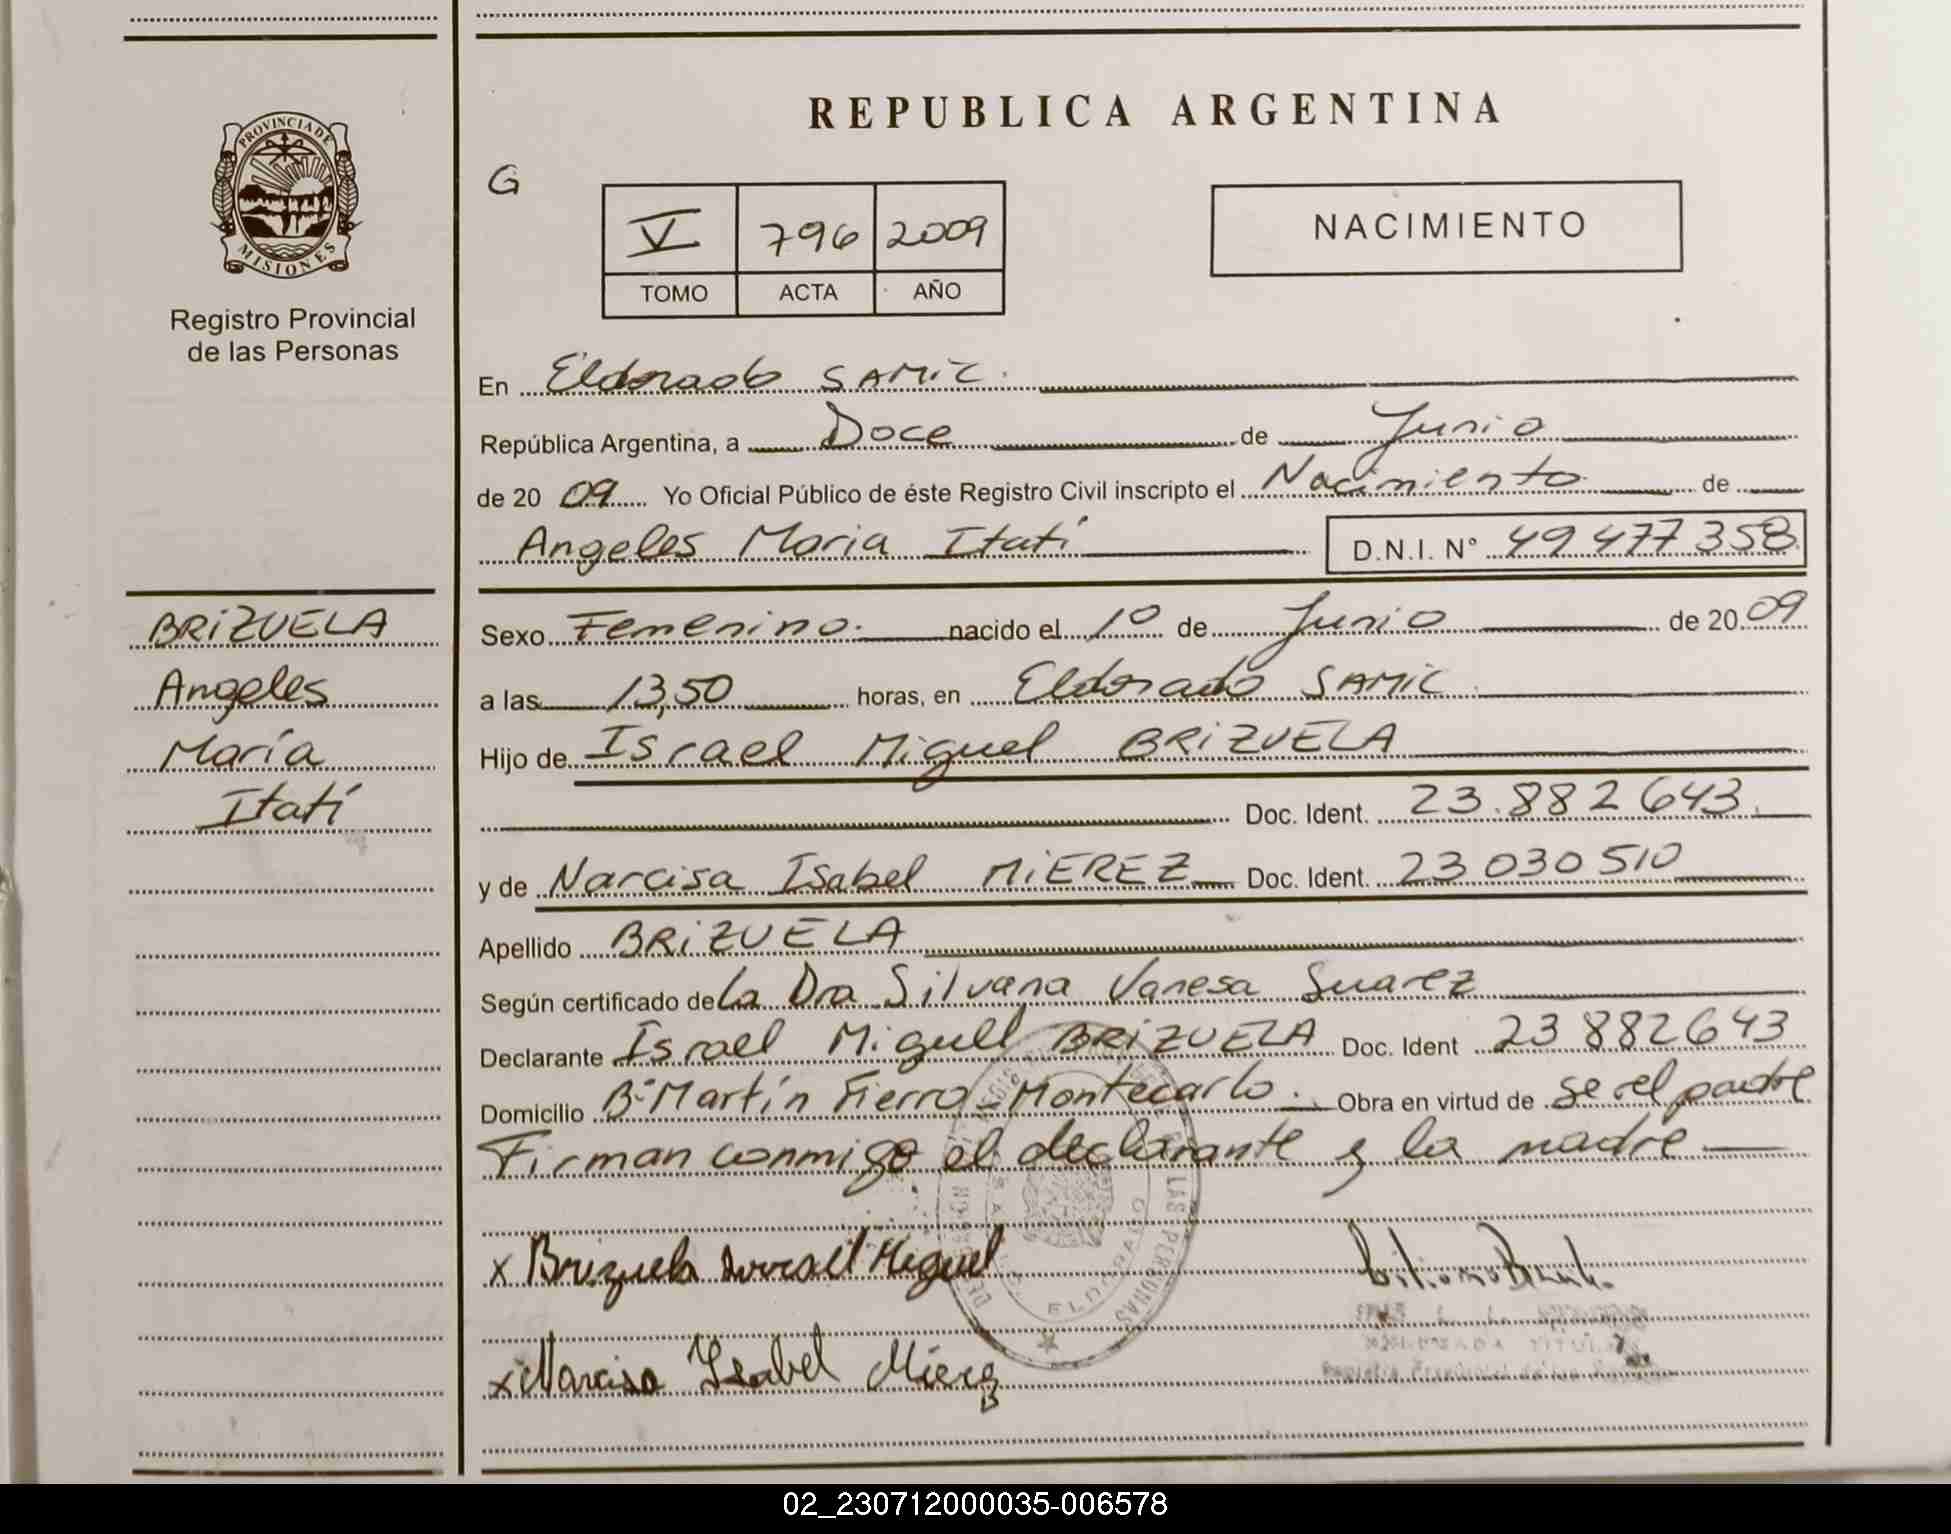 REPUBLICA ARGENTINA
PROVINCIA DE
MISIONES
Registro Provincial
de las Personas
G
V 796 2009
TOMO ACTA AÑO
NACIMIENTO
En Eldorado SAMIC.
República Argentina, a Doce de Junio
de 2009 Yo Oficial Público de éste Registro Civil inscripto el Nacimiento de
Angeles Maria Itatí D.N.I. N° 49 477 358
BRIZUELA
Angeles
María
Itatí
Sexo Femenino. nacido el 1° de Junio de 2009
a las 13,50 horas, en Eldorado SAMIC
Hijo de Israel Miguel BRIZUELA
Doc. Ident. 23.882 643.
y de Narcisa Isabel MIEREZ Doc. Ident. 23 030 510
Apellido BRIZUELA
Según certificado de La Dra Silvana Vanesa Suarez
Declarante Israel Miguel BRIZUELA Doc. Ident 23 882 643
Domicilio B° Martín Fierro - Montecarlo. Obra en virtud de se el padre
Firman conmigo el declarante y la madre
x Brizuela Israel Miguel
x Narcisa Isabel Mierez
LAS PERSONAS
ELDORADO
02_230712000035-006578